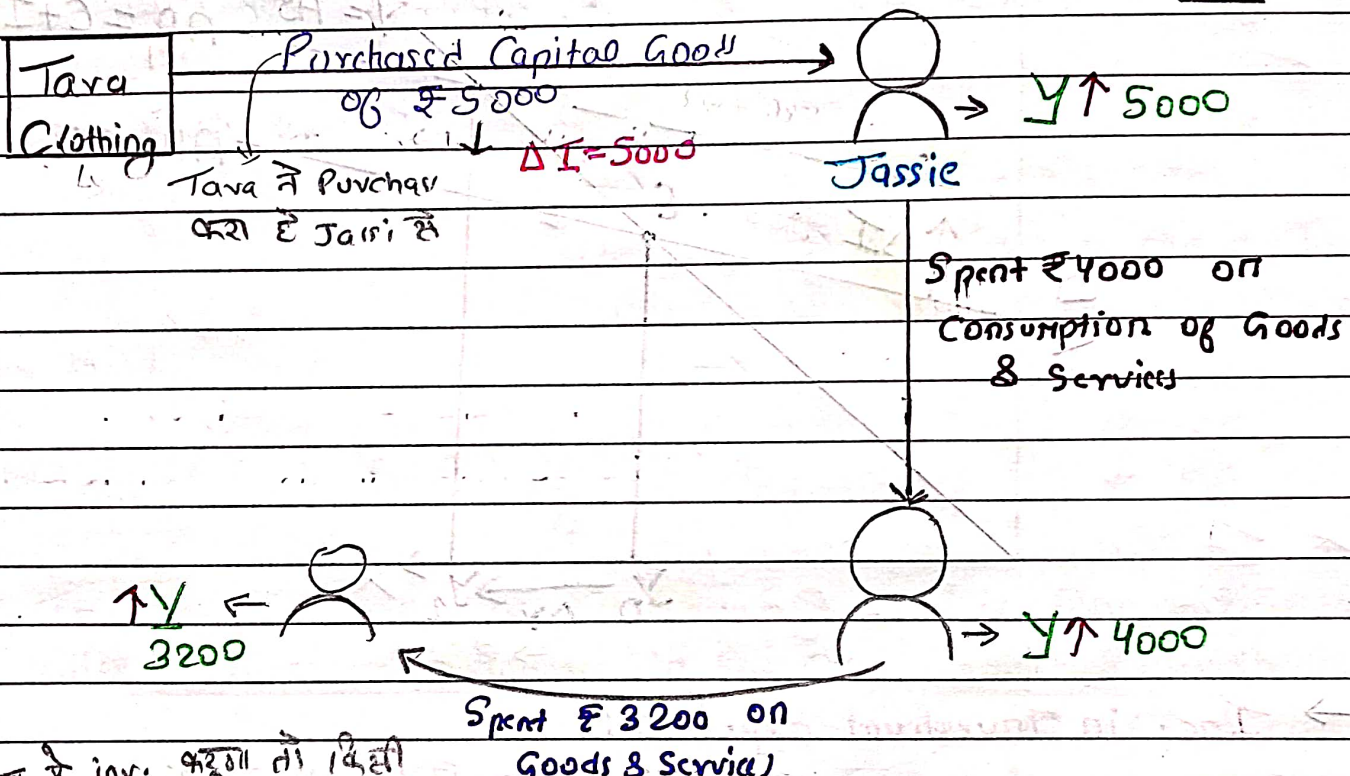 Tara
Clothing
Purchased Capital Goods
of ₹ 5000
ΔI = 5000
Tara ने Purchas
करा है Jassi से
Y↑ 5000
Jassie
Spent ₹4000 on
Consumption of Goods
& Services
↑Y
3200
Y↑ 4000
Spent ₹ 3200 on
Goods & Services
inv. करूगा तो किसी